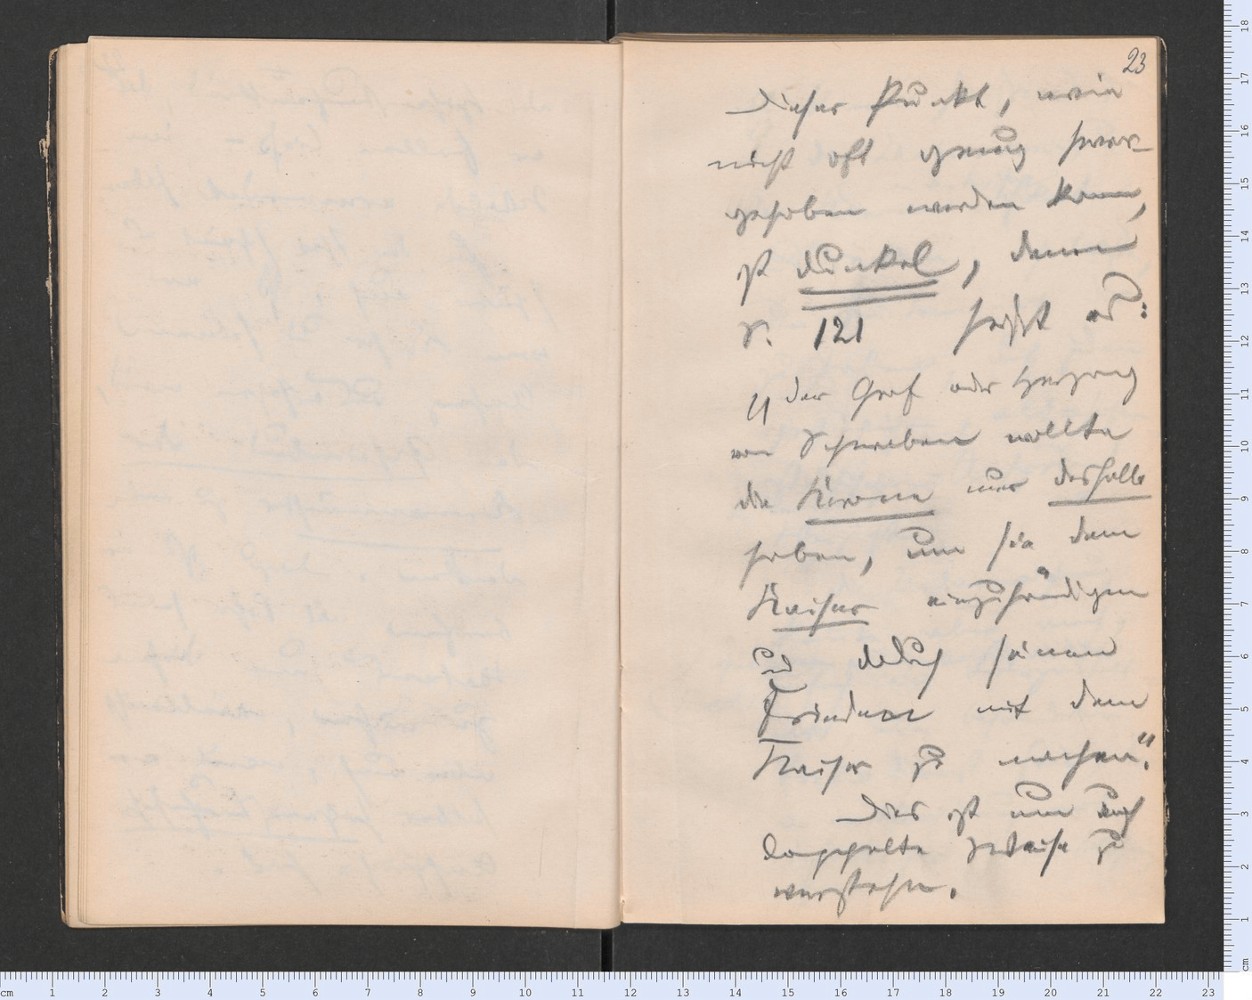 23
Dieser Punkt, wie
nicht oft genug hervor-
gehoben werden kann,
ist dunkel, denn
S. 121 heißt es:
"der Graf oder Herzog
von Schwaben wollte
die Krone nur deshalb
haben, um sie dem
Kaiser einzuhändigen
und dadurch seinen
Frieden mit dem
Kaiser zu machen."
Dies ist nun auf
doppelte Weise zu
verstehen.